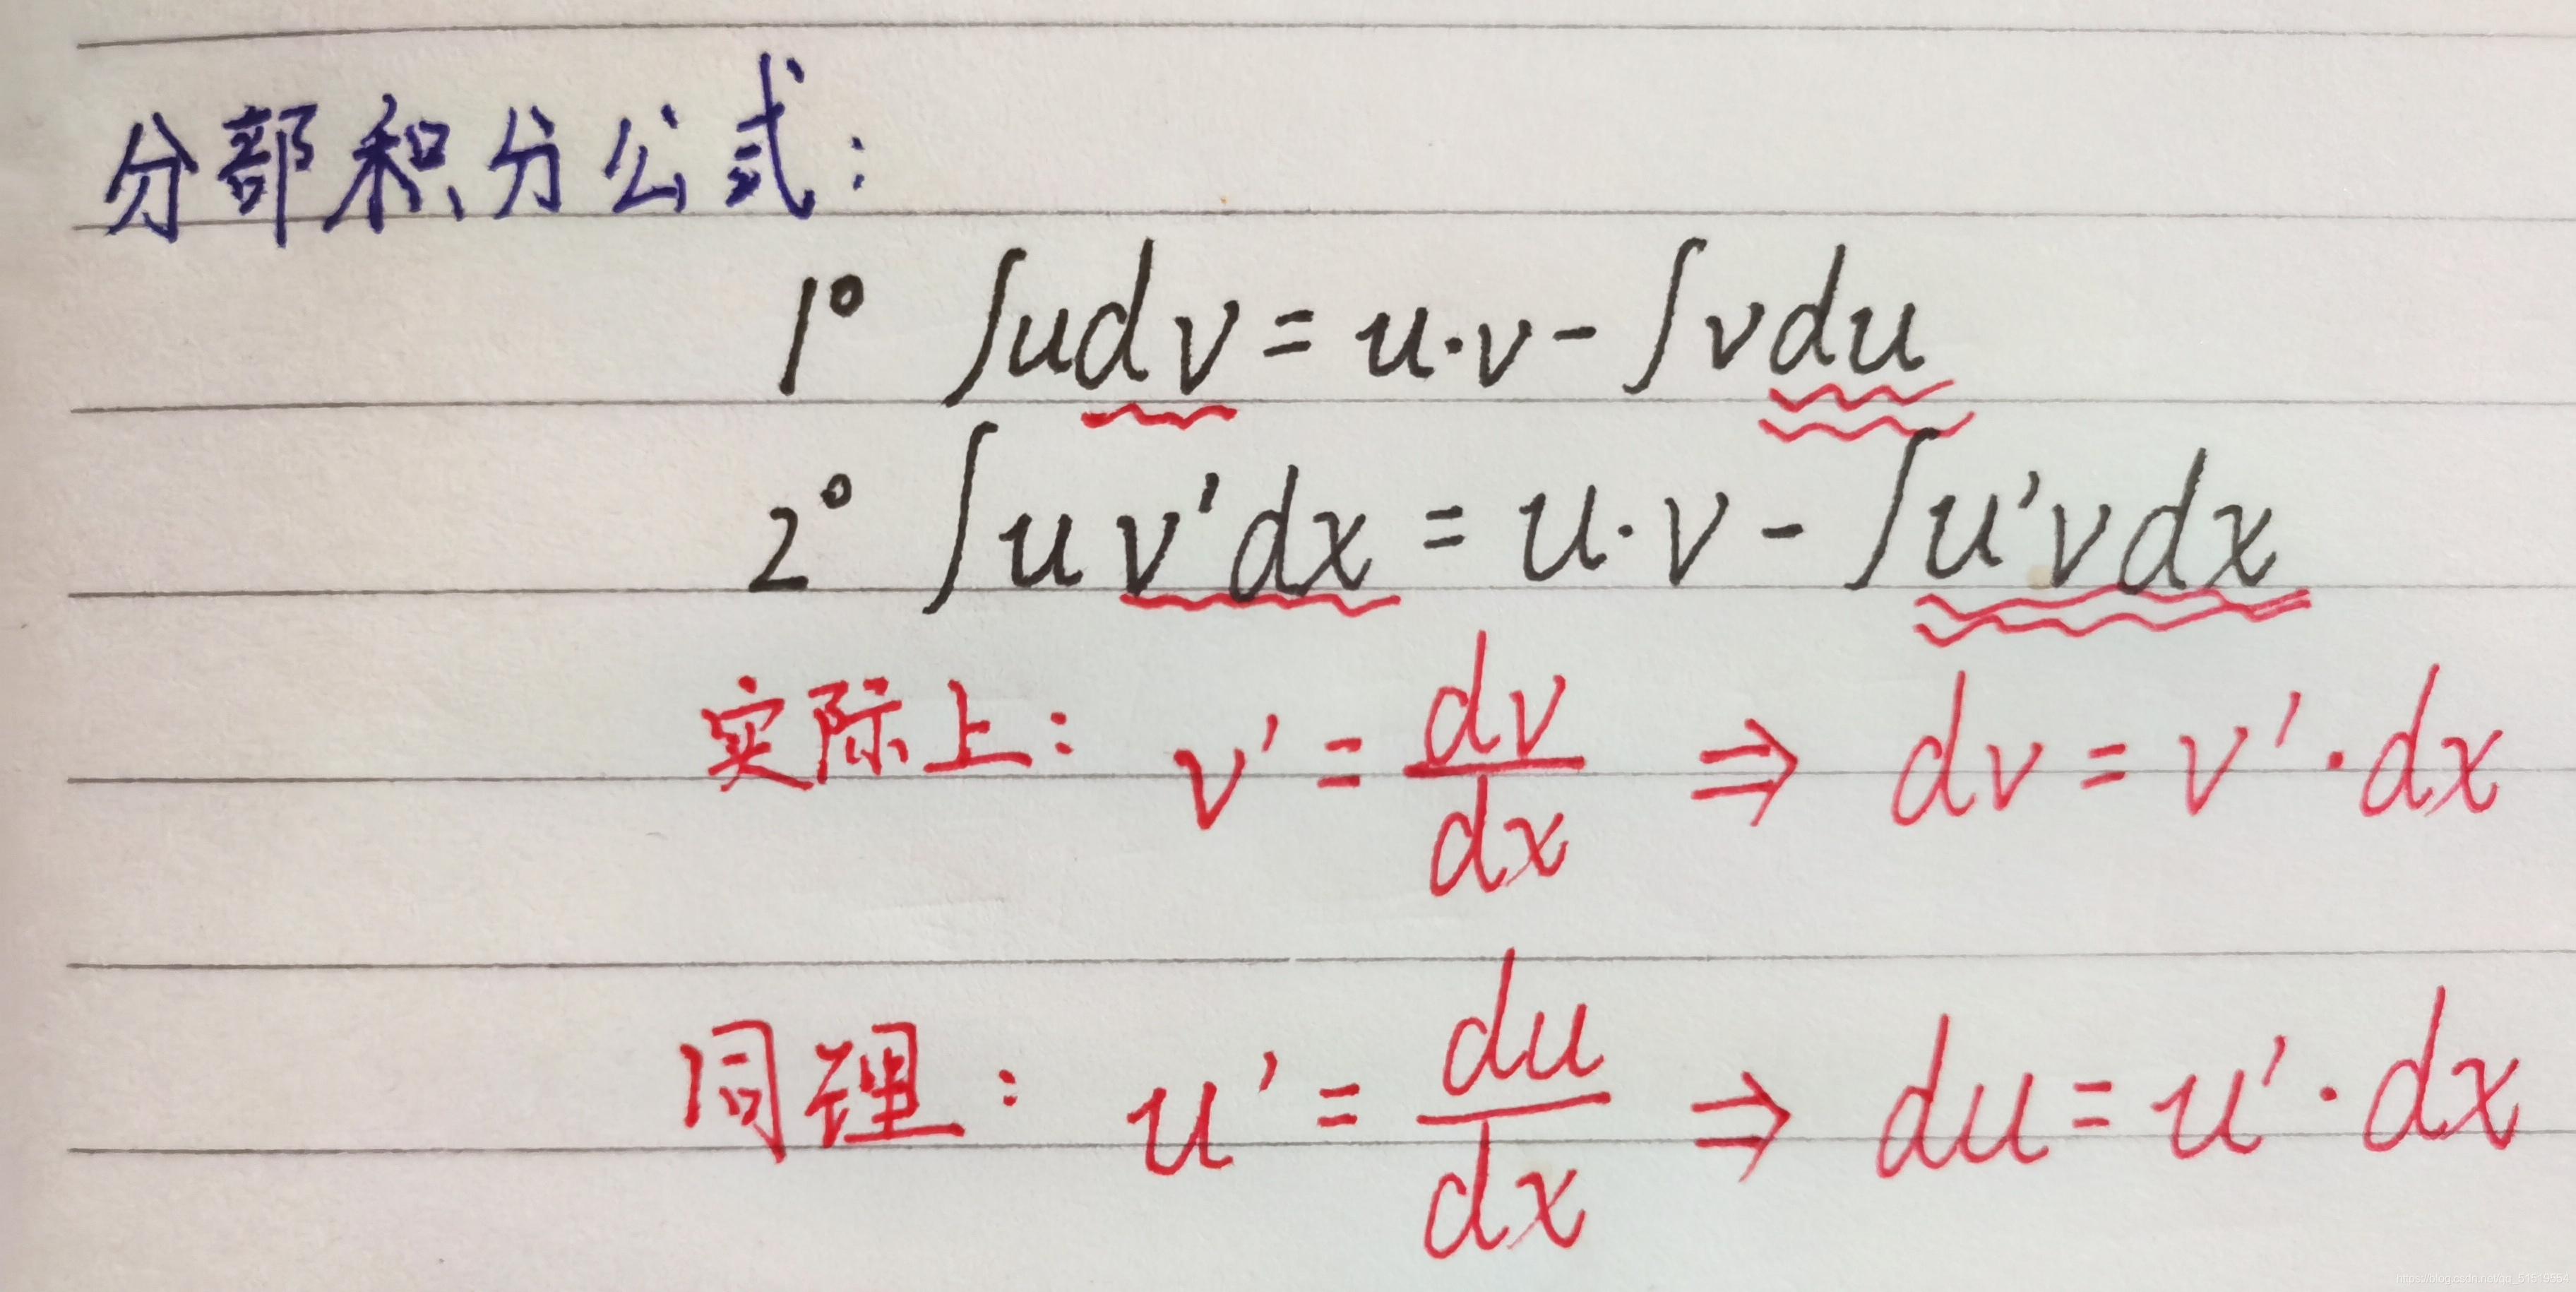 分部积分公式:
1° ∫udv = u·v - ∫vdu
2° ∫uv'dx = u·v - ∫u'vdx
实际上: v' = dv/dx ⇒ dv = v'·dx
同理: u' = du/dx ⇒ du = u'·dx
https://blog.csdn.net/qq_51519554